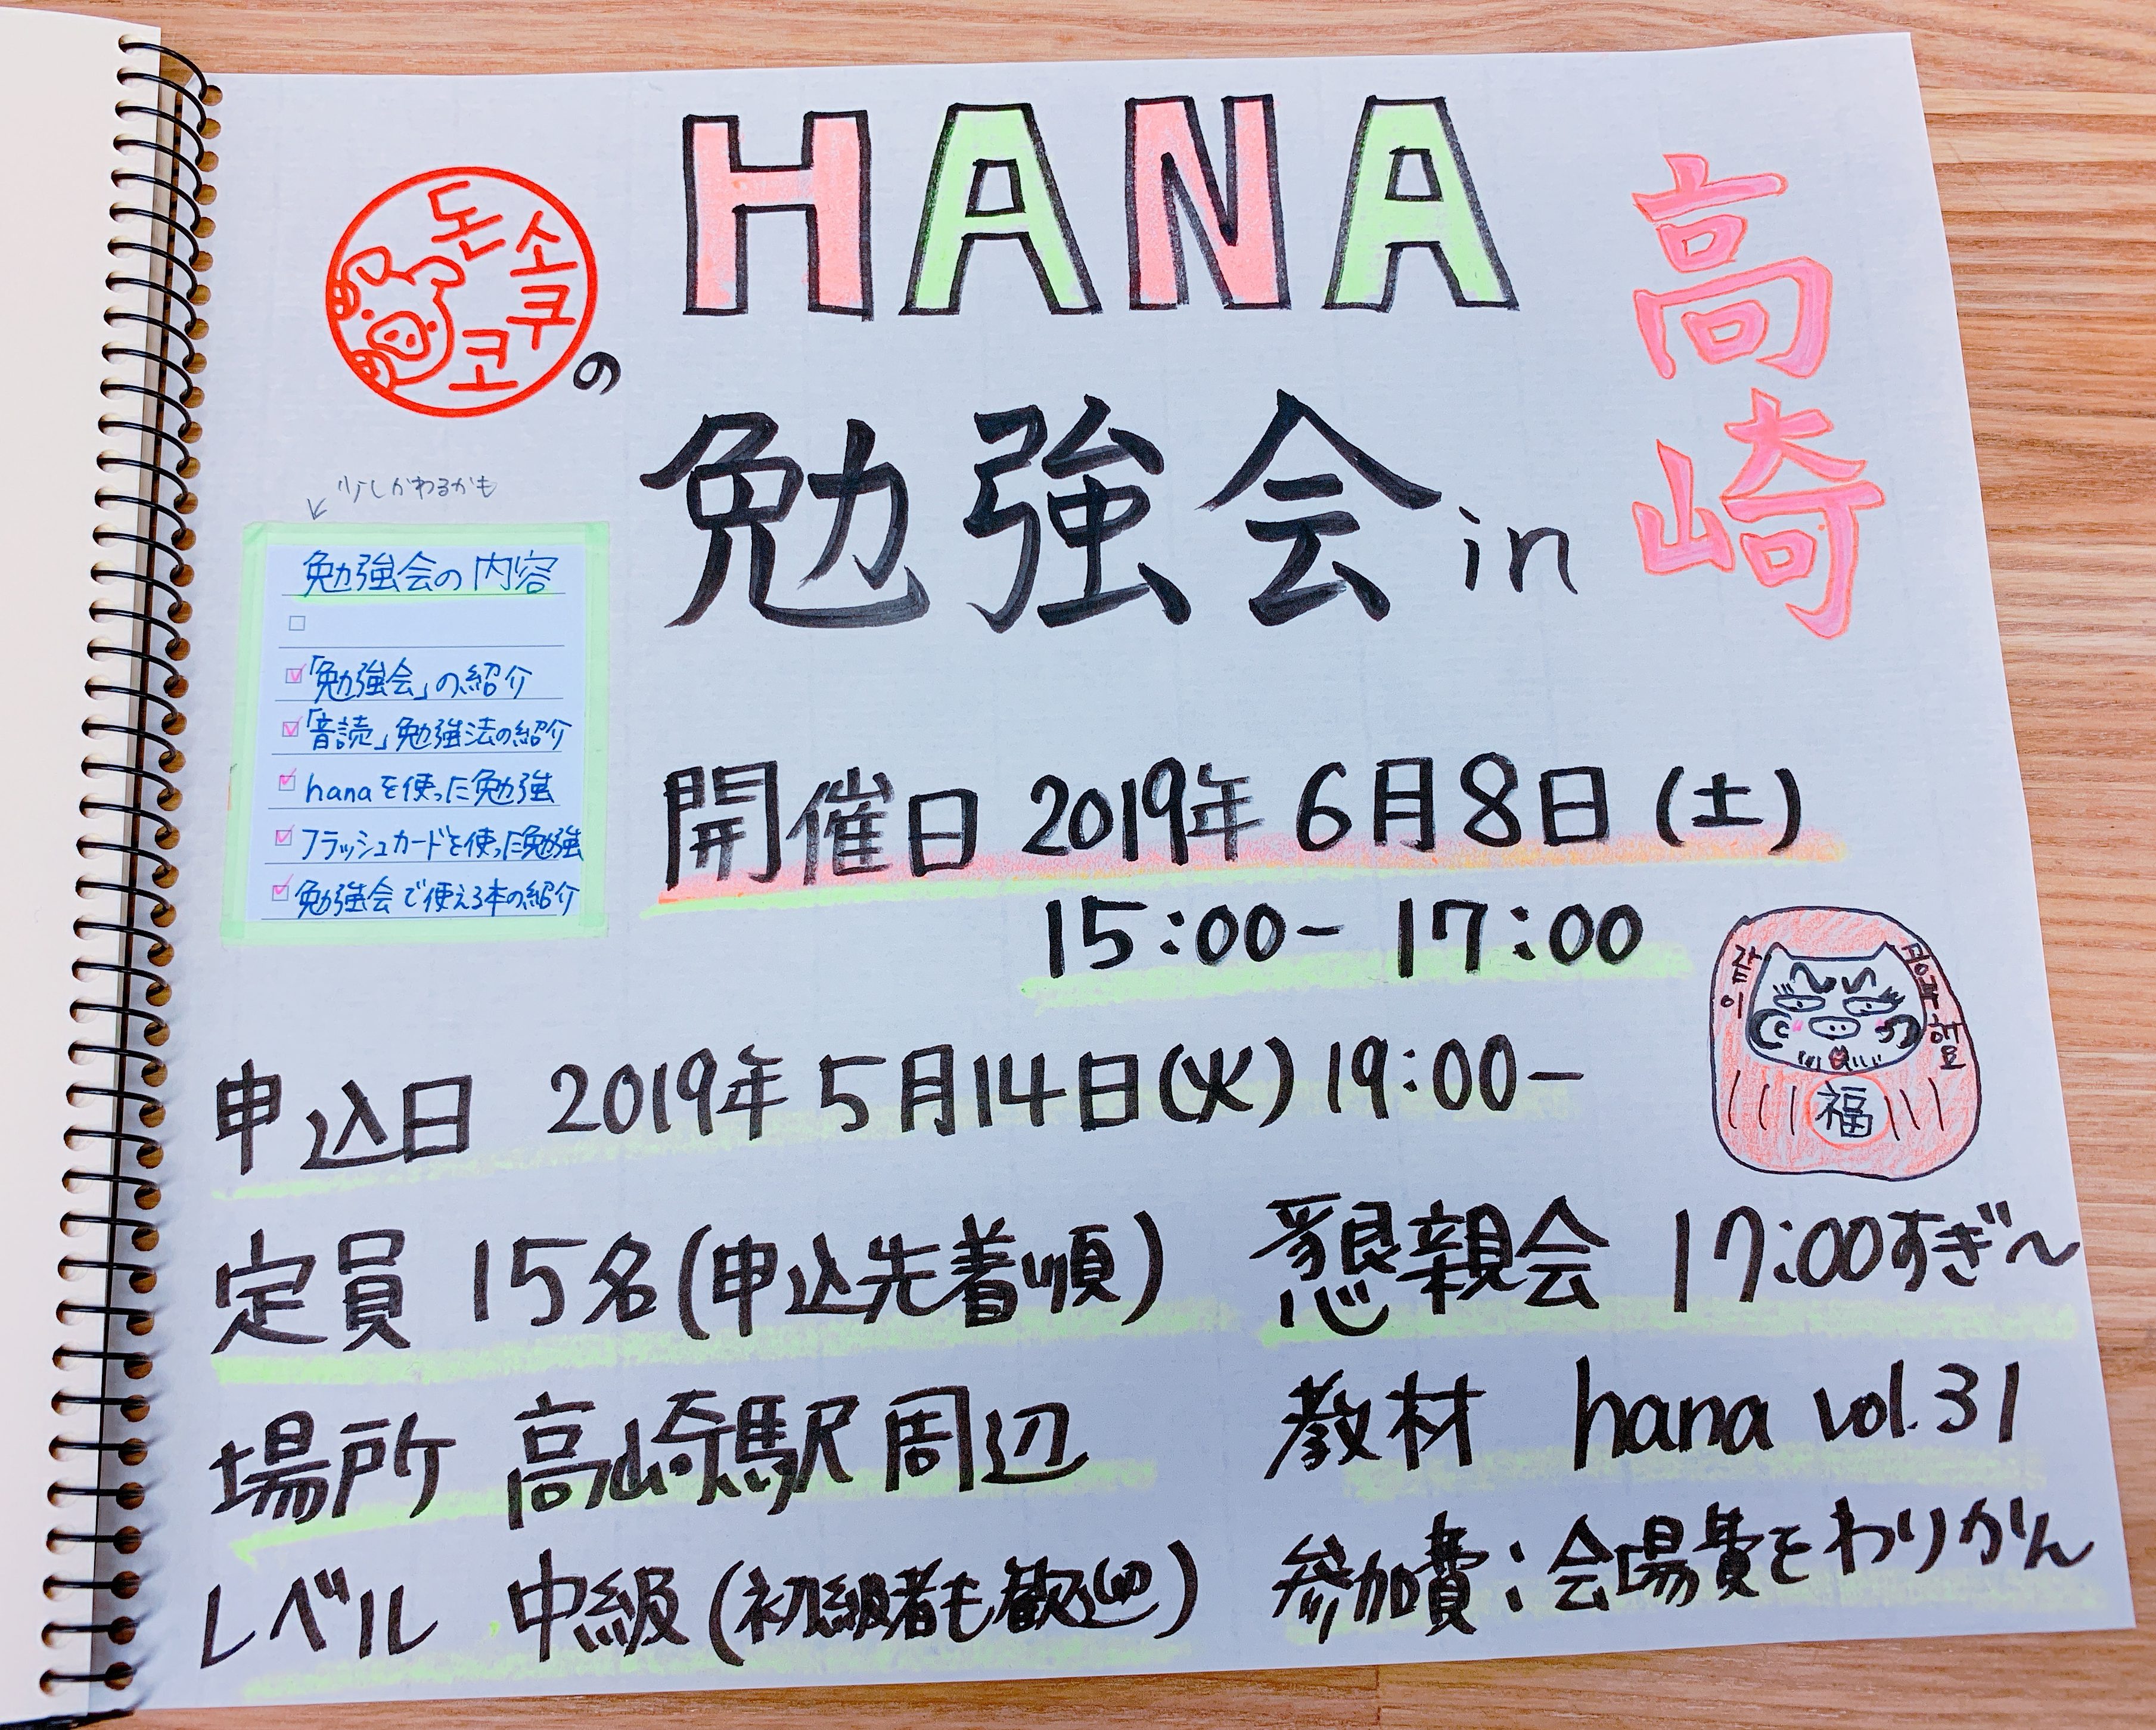 HANA
돈
소
쿠
코
の
勉強会 in
高崎
少しかわるかも
勉強会の内容
「勉強会」の紹介
「音読」勉強法の紹介
hanaを使った勉強
フラッシュカードを使った勉強
勉強会で使える本の紹介
開催日 2019年 6月8日(土)
15:00- 17:00
같이
공부해요
福
申込日 2019年 5月14日(火) 19:00-
定員 15名(申込先着順)
懇親会 17:00すぎ~
場所 高崎駅周辺
教材 hana vol.31
レベル 中級(初級者も歓迎)
参加費:会場費をわりかん